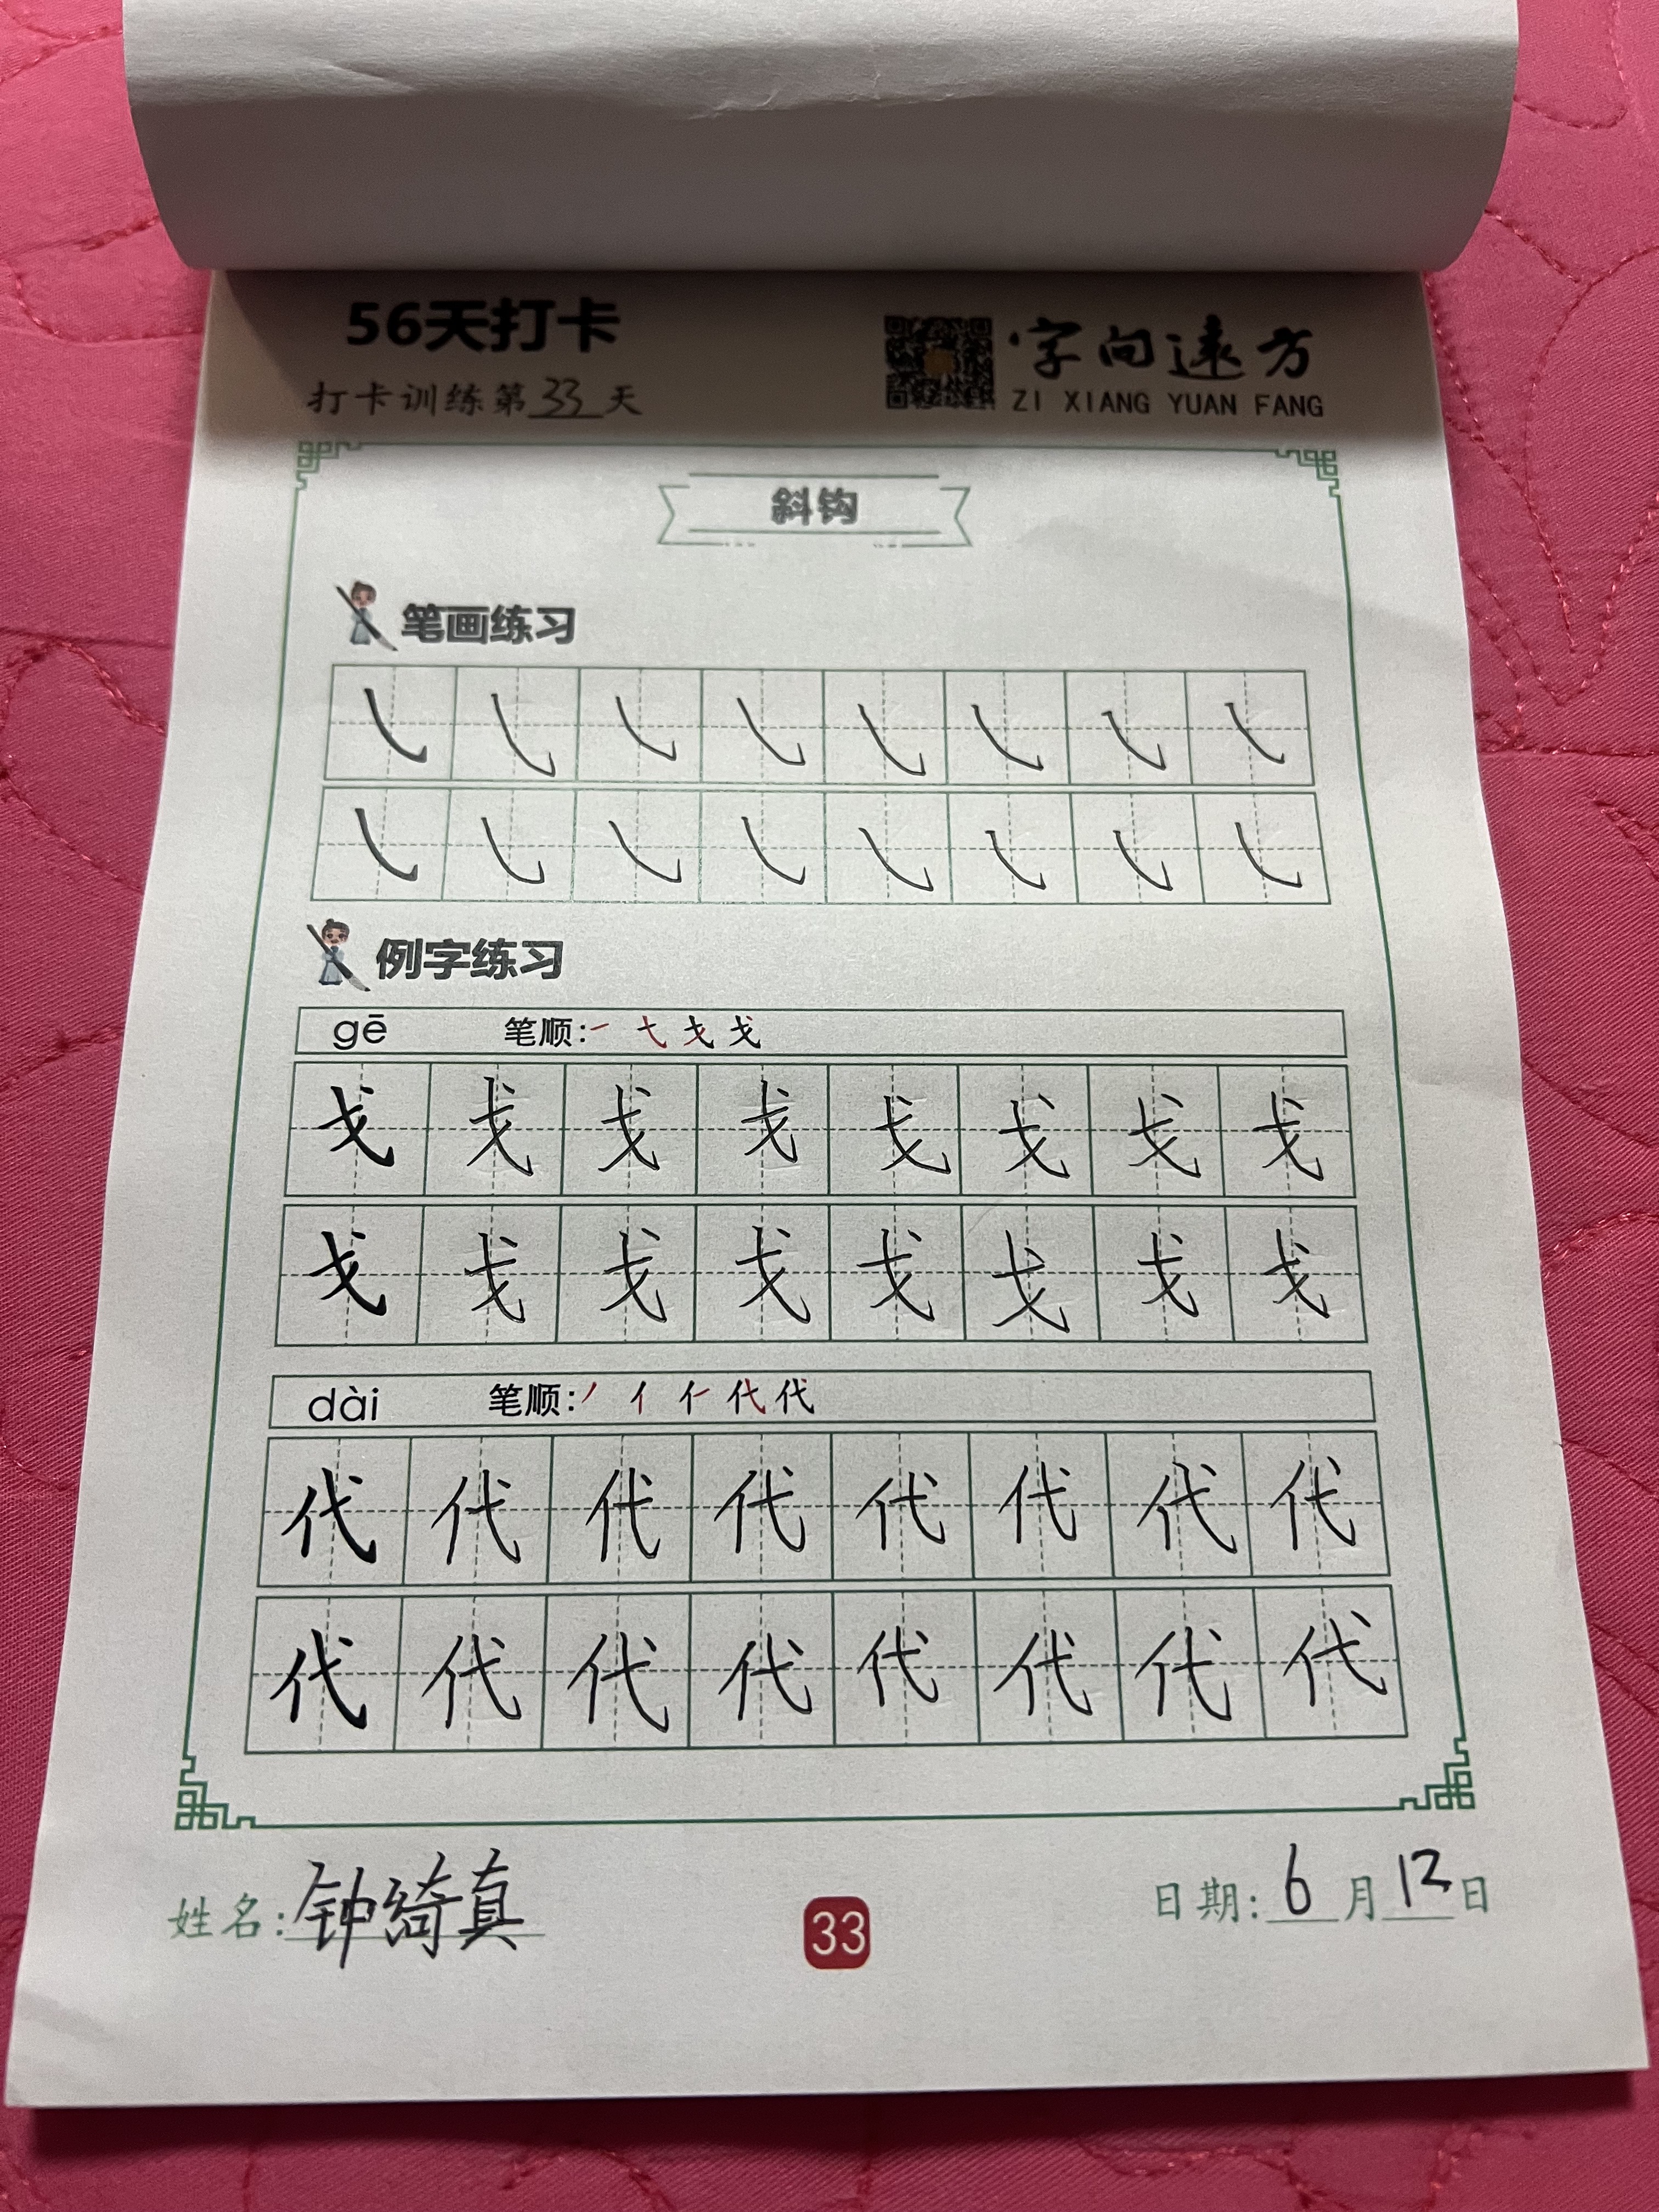 56天打卡
打卡训练第33天
字向遠方
ZI XIANG YUAN FANG
斜钩
笔画练习
㇂ ㇂ ㇂ ㇂ ㇂ ㇂ ㇂ ㇂
㇂ ㇂ ㇂ ㇂ ㇂ ㇂ ㇂ ㇂
例字练习
gē 笔顺: ㇀ 弋 戈 戈
戈 戈 戈 戈 戈 戈 戈 戈
戈 戈 戈 戈 戈 戈 戈 戈
dài 笔顺: 丿 亻 仁 代 代
代 代 代 代 代 代 代 代
代 代 代 代 代 代 代 代
姓名: 钟绮真
33
日期: 6月12日